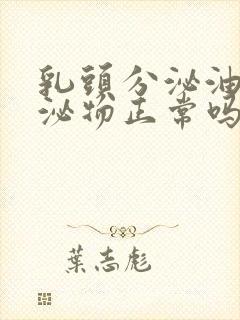 乳頭分泌油
泌物正常嗎
葉志彪